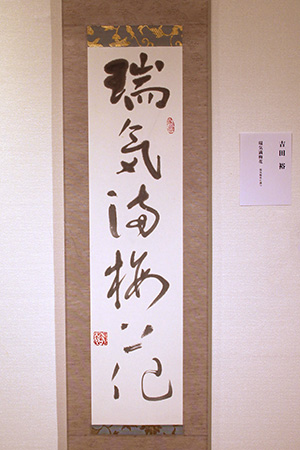 瑞気満梅花
吉田 裕
瑞気満梅花